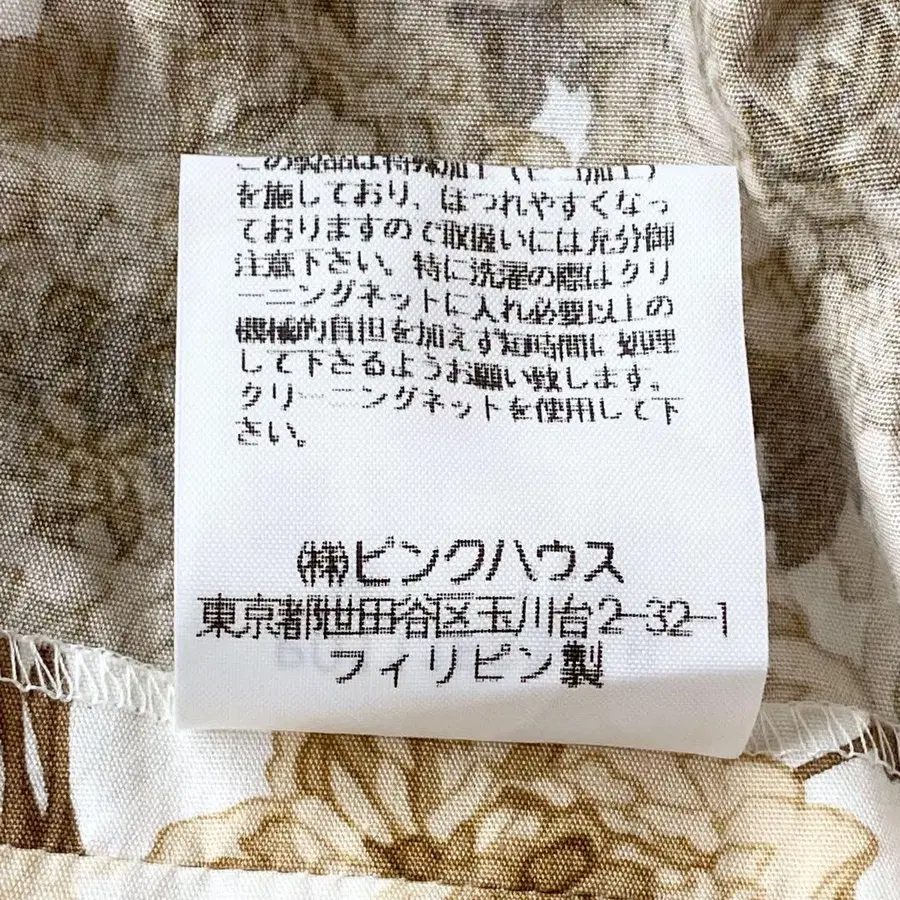 この製品は特殊加工（ピコ加工）
を施しており、ほつれやすくなっ
ておりますので取扱いには充分御
注意下さい。特に洗濯の際はクリ
ーニングネットに入れ必要以上の
機械的負担を加えず短時間に処理
して下さるようお願い致します。
クリーニングネットを使用して下
さい。
㈱ピンクハウス
東京都世田谷区玉川台2-32-1
フィリピン製